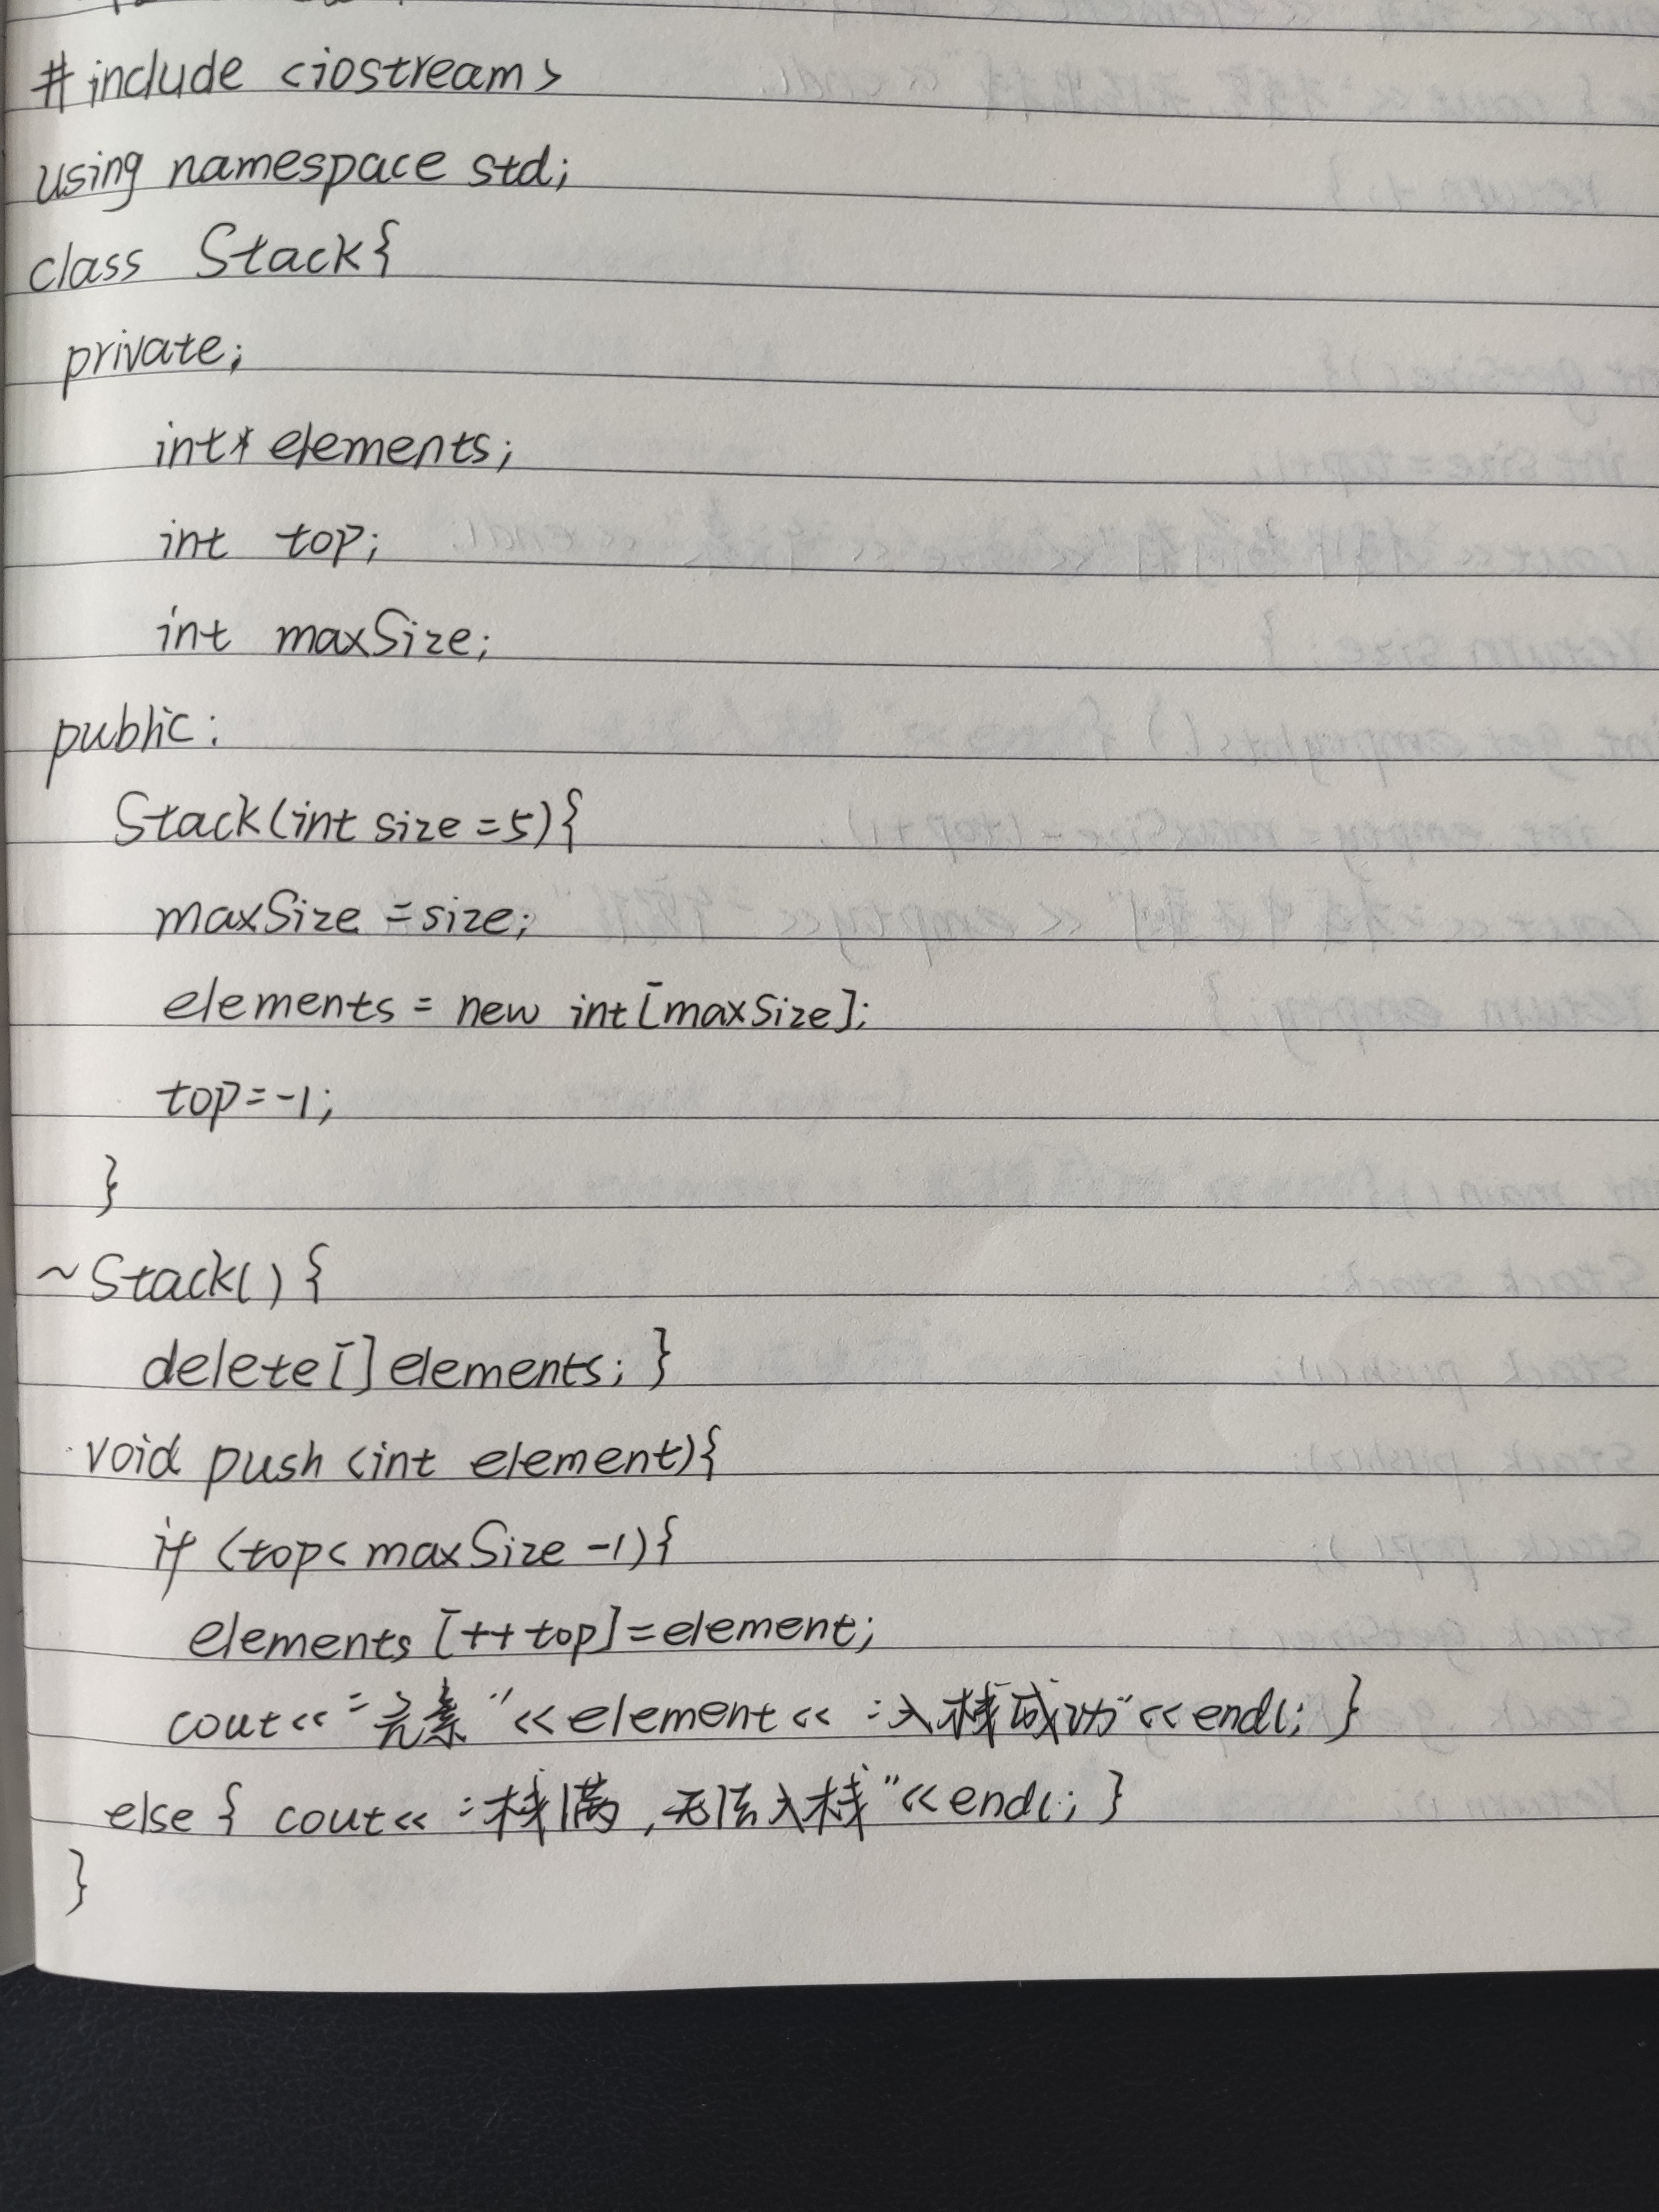 #include <iostream>
using namespace std;
class Stack{
private;
int* elements;
int top;
int maxSize;
public:
Stack(int size=5){
maxSize=size;
elements = new int[maxSize];
top=-1;
}
~Stack(){
delete[] elements; }
void push (int element){
if (top< maxSize -1){
elements [++top]=element;
cout<< "元素"<<element<< "入栈成功"<<endl; }
else { cout<< "栈满,无法入栈"<<endl; }
}